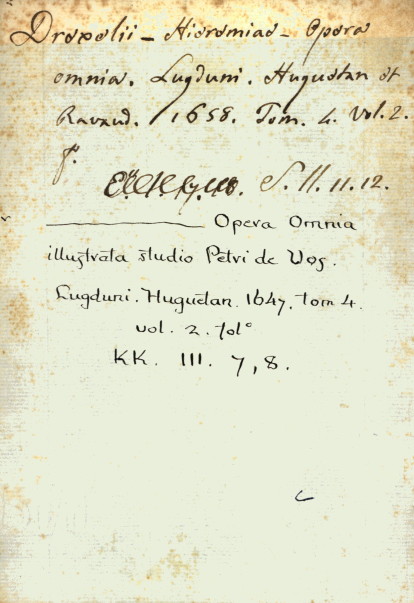 Drexelii - Hieremiae - Opera
omnia. Lugduni. Huguetan et
Ravaud. 1658. Tom. 4. Vol. 2.
f.
S. II. 11. 12.
Opera Omnia
illustrata studio Petri de Vos.
Lugduni. Huguetan. 1647. tom 4.
vol. 2. folº
KK. III. 7, 8.